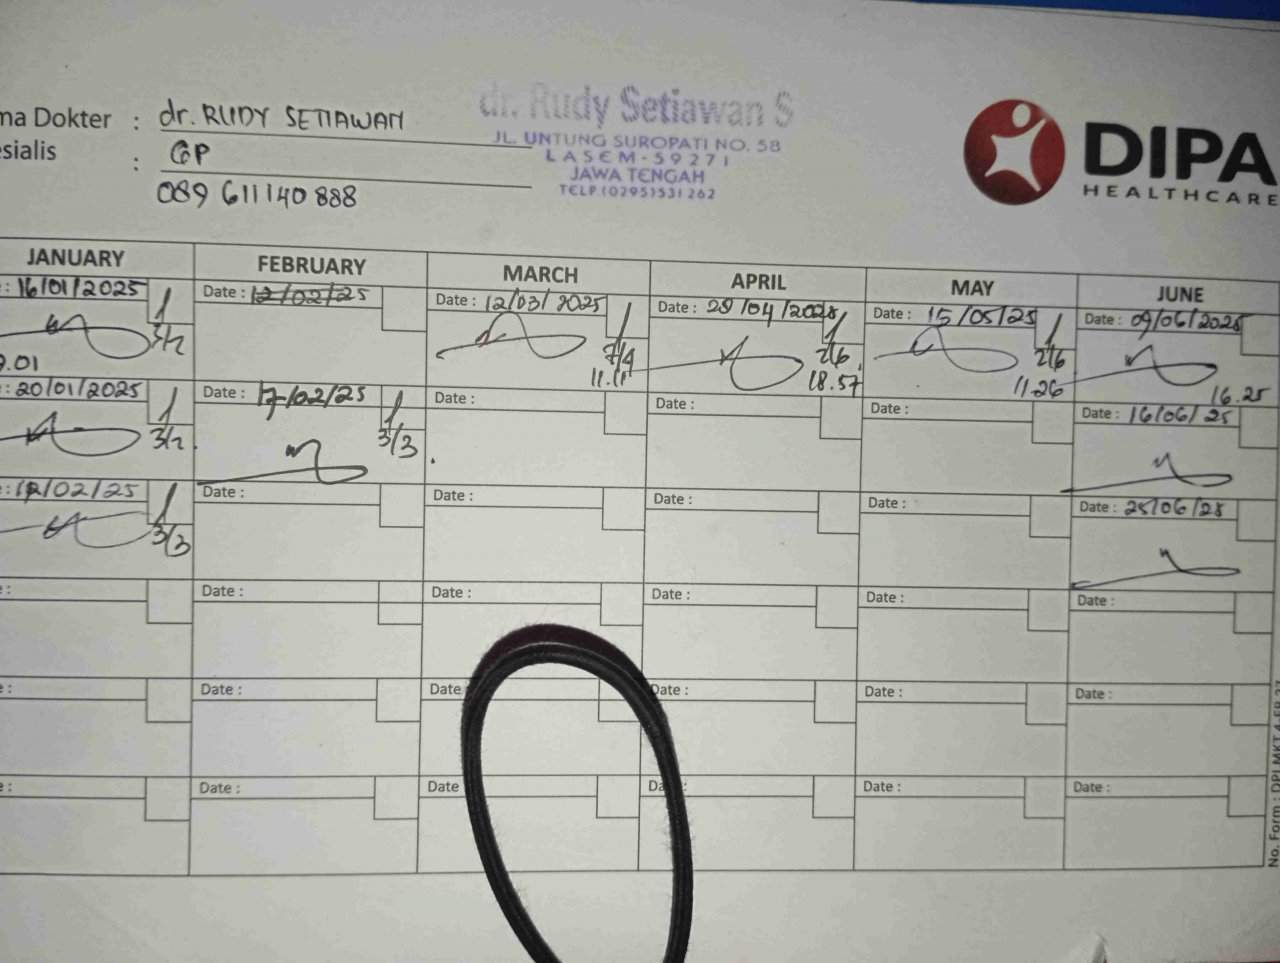 ma Dokter : dr. RUDY SETIAWAN
esialis : GP
089 611140 888
dr. Rudy Setiawan S
JL. UNTUNG SUROPATI NO. 58
LASEM-59271
JAWA TENGAH
TELP.(0295)531262
DIPA
HEALTHCARE
JANUARY FEBRUARY MARCH APRIL MAY JUNE
: 16/01/2025 Date : 12/02/25 Date : 12/03/2025 Date : 29/04/2025 Date : 15/05/25 Date : 09/06/2025
3/2 7/4 2/6 2/6
9.01 11.11 18.57 11.26 16.25
: 20/01/2025 Date : 17/02/25 Date : Date : Date : Date : 16/06/25
3/2 3/3
: 12/02/25 Date : Date : Date : Date : Date : 25/06/25
3/3
: Date : Date : Date : Date : Date :
: Date : Date Date : Date : Date :
: Date : Date Da Date : Date :
No. Form : DPI.MKT.4.FR.